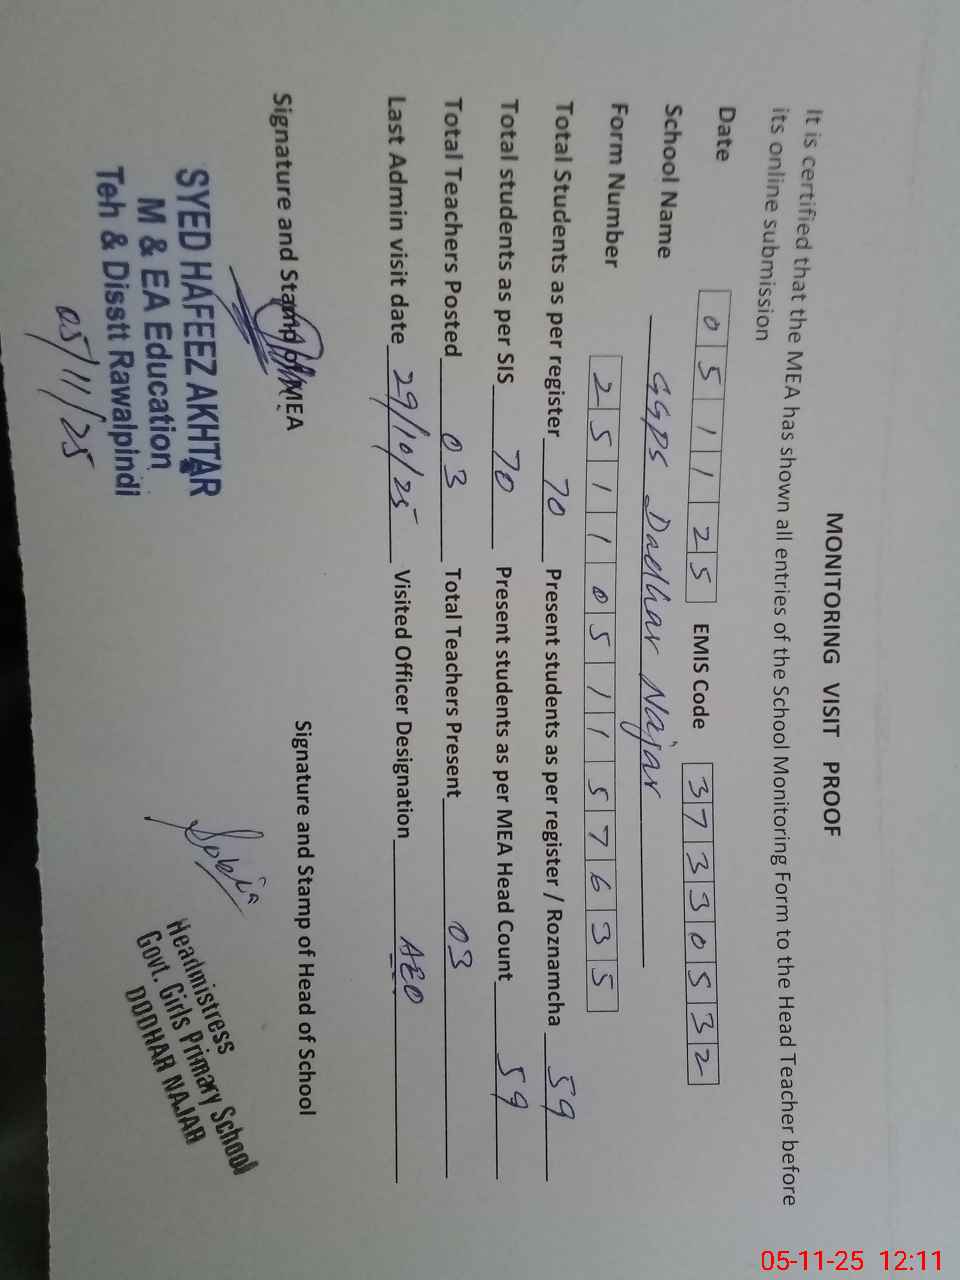 MONITORING VISIT PROOF
It is certified that the MEA has shown all entries of the School Monitoring Form to the Head Teacher before
its online submission
Date 051125 EMIS Code 37330532
School Name GGPS Dadhar Najar
Form Number 2511051157635
Total Students as per register 70 Present students as per register / Roznamcha 59
Total students as per SIS 70 Present students as per MEA Head Count 59
Total Teachers Posted 03 Total Teachers Present 03
Last Admin visit date 29/10/25 Visited Officer Designation AEO
Signature and Stamp of MEA Signature and Stamp of Head of School
SYED HAFEEZ AKHTAR
M & EA Education
Teh & Disstt Rawalpindi
05/11/25
Sobia
Headmistress
Govt. Girls Primary School
DODHAR NAJAR
05-11-25 12:11